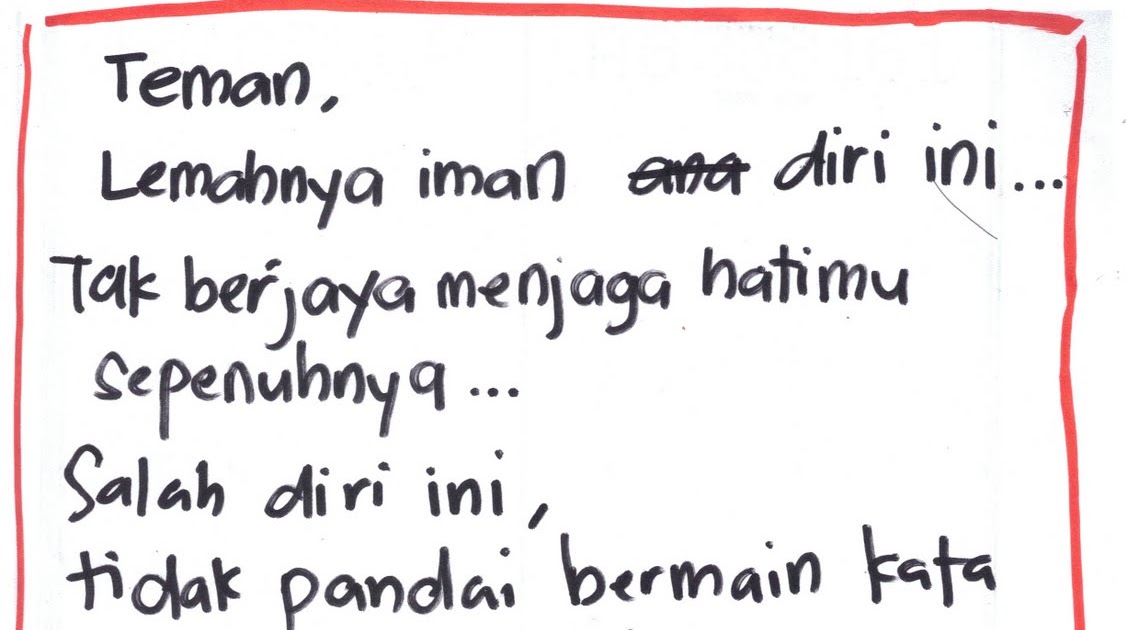 Teman,
Lemahnya iman ana diri ini...
Tak berjaya menjaga hatimu
sepenuhnya...
Salah diri ini,
tidak pandai bermain kata